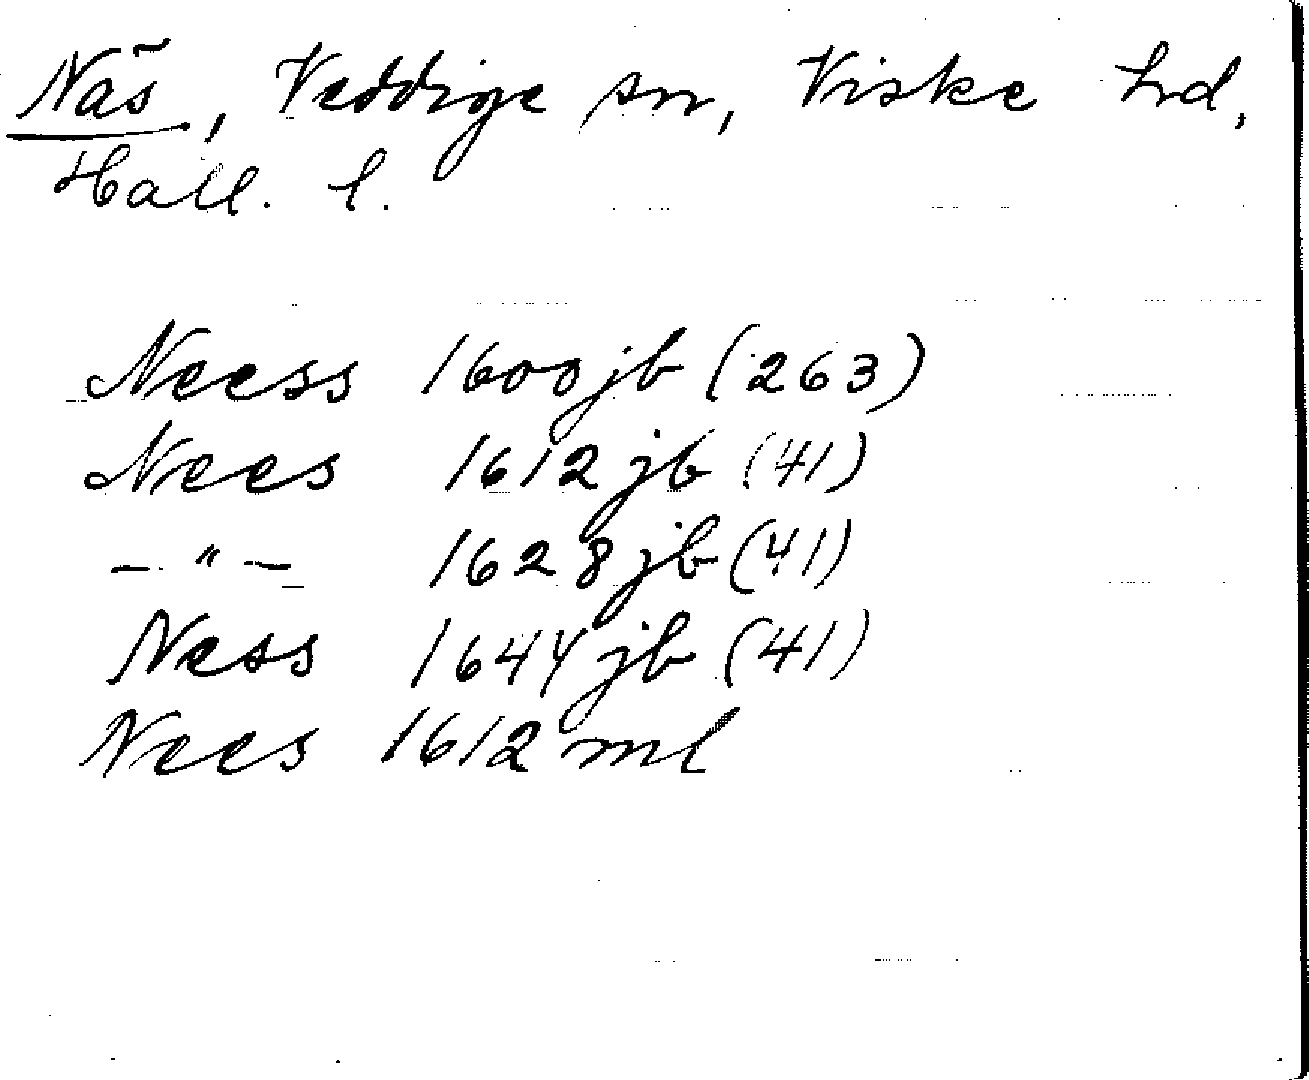 Näs, Veddige sn, Viske hd,
Hall. l.
Neess 1600 jb (263)
Nees 1612 jb (41)
— " — 1628 jb (41)
Ness 1644 jb (41)
Nees 1612 ml